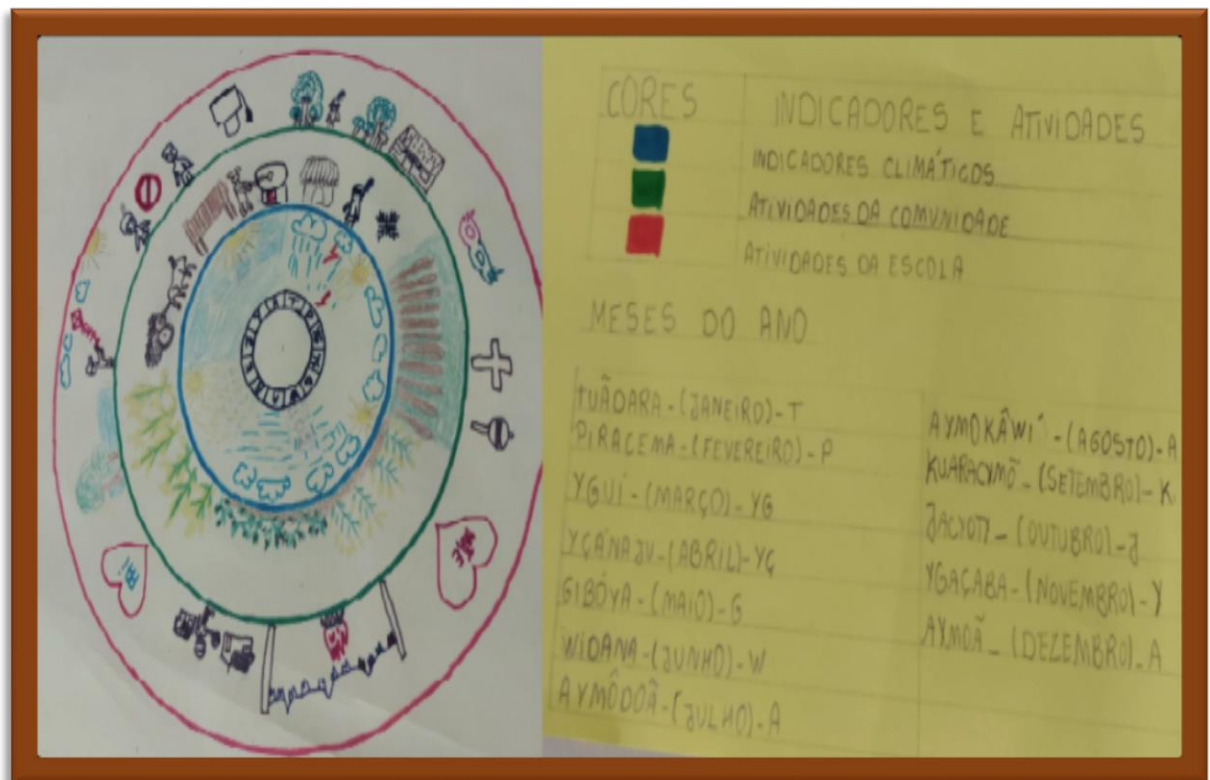 PAI
MÃE
CORES
INDICADORES E ATIVIDADES
INDICADORES CLIMÁTICOS
ATIVIDADES DA COMUNIDADE
ATIVIDADES DA ESCOLA
MESES DO ANO
TUÃDARA-(JANEIRO)-T
PIRACEMA-(FEVEREIRO)-P
YGUÍ-(MARÇO)-YG
YÇÁNAJU-(ABRIL)-YÇ
GIBÓYA-(MAIO)-G
WIDANA-(JUNHO)-W
AYMÔDOÃ-(JULHO)-A
AYMOKÂWÍ-(AGOSTO)-A
KUARACYMÕ-(SETEMBRO)-K
(OUTUBRO)-J
YGAÇABA-(NOVEMBRO)-Y
AYMOÃ-(DEZEMBRO)-A